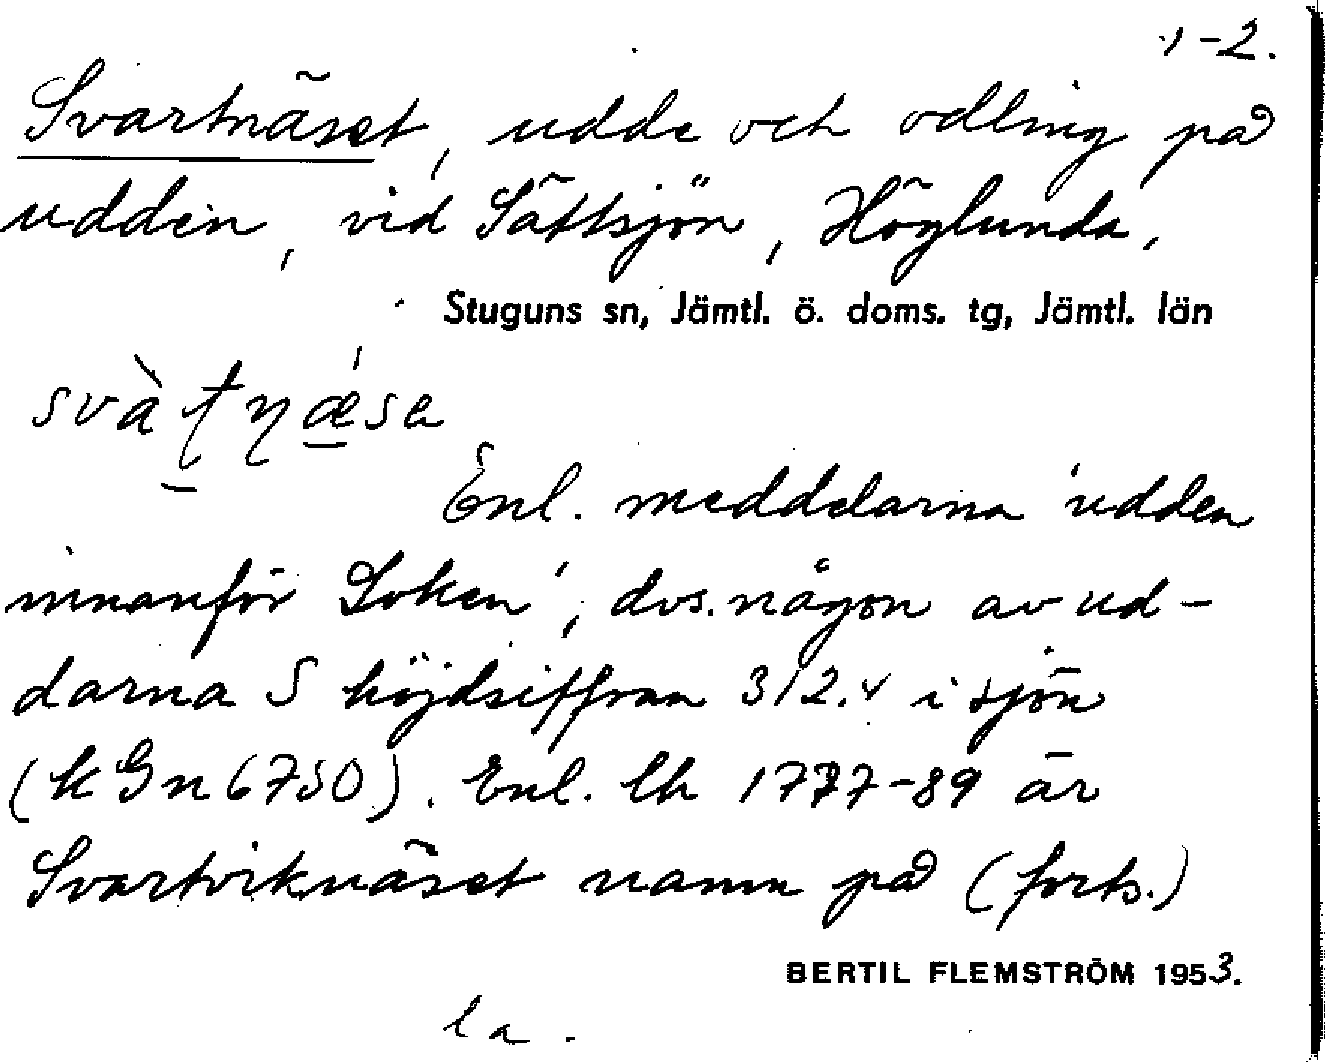 1-2.
Svartnäset, udde och odling på
udden, vid Sättsjön, Höglunda,
Stuguns sn, Jämtl. ö. doms. tg, Jämtl. län
svàʈɳǽsa
Enl. meddelarna 'udden
innanför Loken', dvs. någon av ud-
darna S höjdsiffran 312.4 i sjön
(k Gn 6750). Enl. lh 1777-89 är
Svartviknäset namn på (forts.)
BERTIL FLEMSTRÖM 1953.
la.